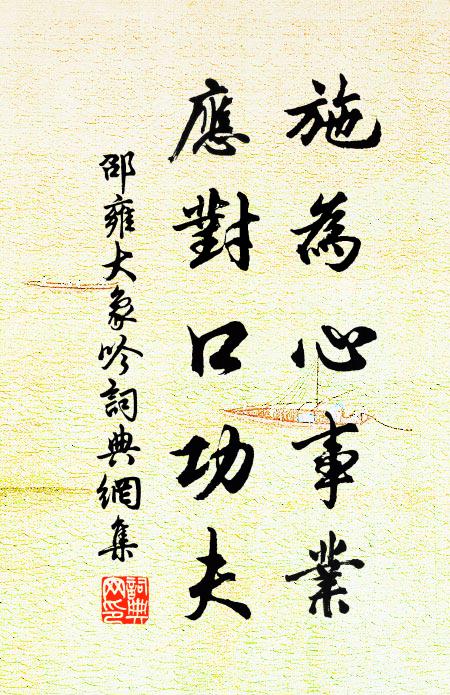 施為心事業
應對口功夫
邵雍大象吟詞典網集
詞典網印